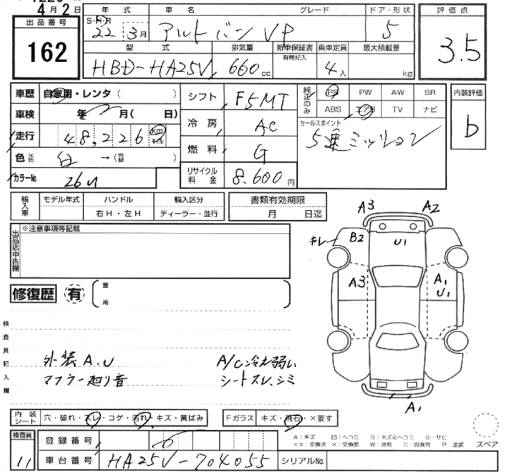 4月2日
出品番号 162
年式 車名 グレード ドア・形状 評価点
22年3月 アルトバン VP 5 3.5
型式 排気量 新車保証書 乗車定員 最大積載量
有無記入
HBD-HA25V 660cc 4人 kg
車歴 自家用・レンタ シフト F5MT 純正のみ PS PW AW SR 内装評価
ABS エアB TV ナビ b
車検 年 月(日) 冷房 AC セールスポイント
走行 48,226 燃料 G 5速ミッション
色 白→
カラーNo 26U リサイクル料金 8,600円
輸入車 モデル年式 ハンドル 輸入区分 書類有効期限
右H・左H ディーラー・並行 月 日迄
出品店申告欄 ※注意事項等記載
A3 A2
キレ B2 U1
A3 A1
U1
A1
修復歴 有 箇所
検査員記入欄
外装A.U A/C冷え弱い
マフラー廻り音 シートスレ、シミ
内装シート 穴・破れ・スレ・コゲ・汚れ・キズ・黄ばみ Fガラス キズ・飛石・×要す
スペア
検査員 11 登録番号
車台番号 HA25V-704055 シリアルNo.